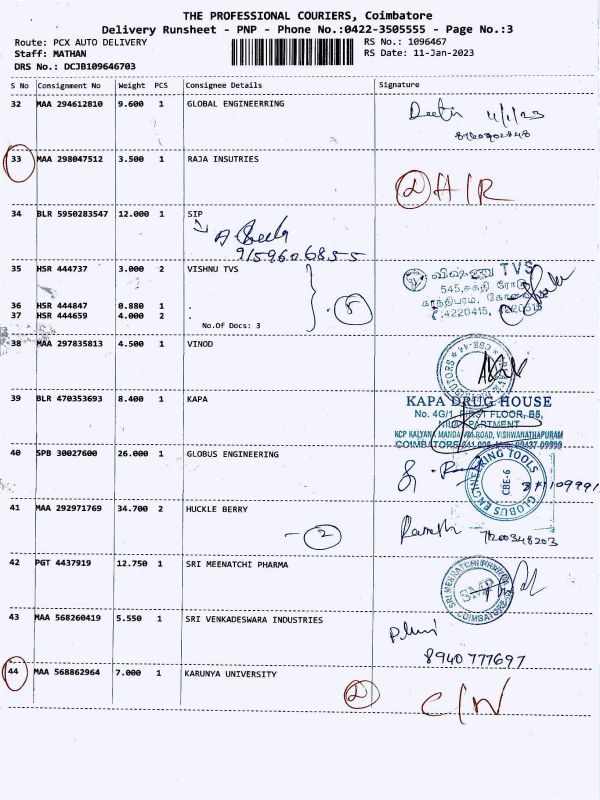 THE PROFESSIONAL COURIERS, Coimbatore
Delivery Runsheet - PNP - Phone No.:0422-3505555 - Page No.:3
Route: PCX AUTO DELIVERY
Staff: MATHAN
DRS No.: DCJB109646703
RS No.: 1096467
RS Date: 11-Jan-2023
S No Consignment No Weight PCS Consignee Details Signature
32 MAA 294612810 9.600 1 GLOBAL ENGINEERRING
33 MAA 298047512 3.500 1 RAJA INSUTRIES
34 BLR 5950283547 12.000 1 SIP
9159606855
35 HSR 444737 3.000 2 VISHNU TVS
விஷ்ணு TVS
36 HSR 444847 0.880 1 .
37 HSR 444659 4.000 2 .
No.Of Docs: 3
5
38 MAA 297835813 4.500 1 VINOD
39 BLR 470353693 8.400 1 KAPA
KAPA DRUG HOUSE
No. 4G/1, FIRST FLOOR, B5,
NILA APARTMENT
NCP KALYANA MANDAPAM ROAD, VISHWANATHAPURAM
40 SPB 30027600 26.000 1 GLOBUS ENGINEERING
GLOBUS ENGINEERING TOOLS
CBE-6
41 MAA 292971769 34.700 2 HUCKLE BERRY
- 2
Ramesh 7200348203
42 PGT 4437919 12.750 1 SRI MEENATCHI PHARMA
SMP
COIMBATORE
43 MAA 568260419 5.550 1 SRI VENKADESWARA INDUSTRIES
8940777697
44 MAA 568862964 7.000 1 KARUNYA UNIVERSITY
C/N